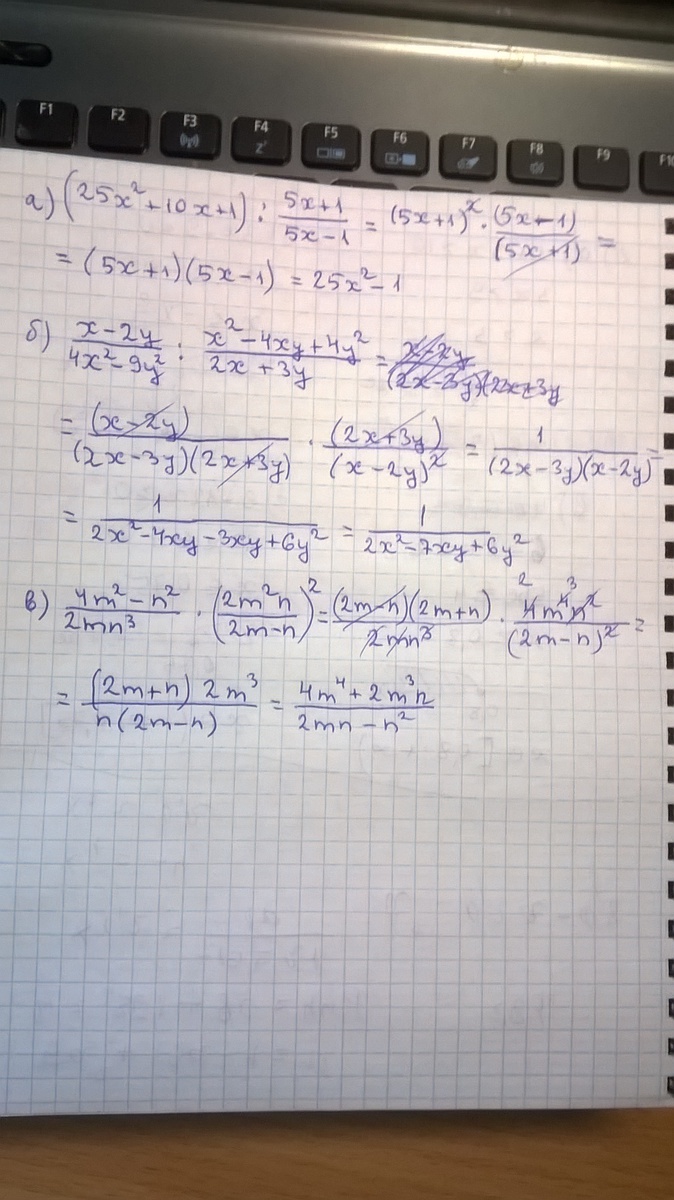 F1 F2 F3 F4 F5 F6 F7 F8 F9 F10
z
а) (25x²+10x+1) : (5x+1)/(5x-1) = (5x+1)² · (5x-1)/(5x+1) =
= (5x+1)(5x-1) = 25x²-1
б) (x-2y)/(4x²-9y²) : (x²-4xy+4y²)/(2x+3y) = (x-2y)/((2x-3y)(2x+3y
= (x-2y)/((2x-3y)(2x+3y)) · (2x+3y)/(x-2y)² = 1/((2x-3y)(x-2y)) =
= 1/(2x²-4xy-3xy+6y²) = 1/(2x²-7xy+6y²)
в) (4m²-n²)/(2mn³) · ((2m²n)/(2m-n))² = ((2m-n)(2m+n))/(2mn³) · (4m⁴n²)/(2m-n)² =
2 3
= ((2m+n) 2m³)/(n(2m-n)) = (4m⁴+2m³n)/(2mn-n²)